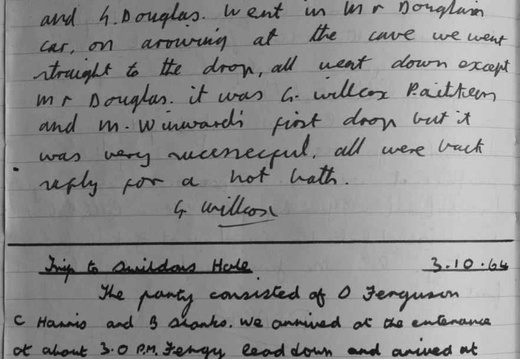 and G. Douglas. Went in Mr Douglas's
car, on arowing at the cave we went
straight to the drop, all went down except
Mr Douglas. it was G. Willcox P. aitken
and M. Winward's first drop but it
was very successful. all were back
for a hot bath.
G Willcox
Trip to Swildons Hole 3.10.64
The party consisted of D Ferguson
C Harris and B Shanks. We arrived at the enterance
at about 3.0 P.M. Fergy lead down and arived at